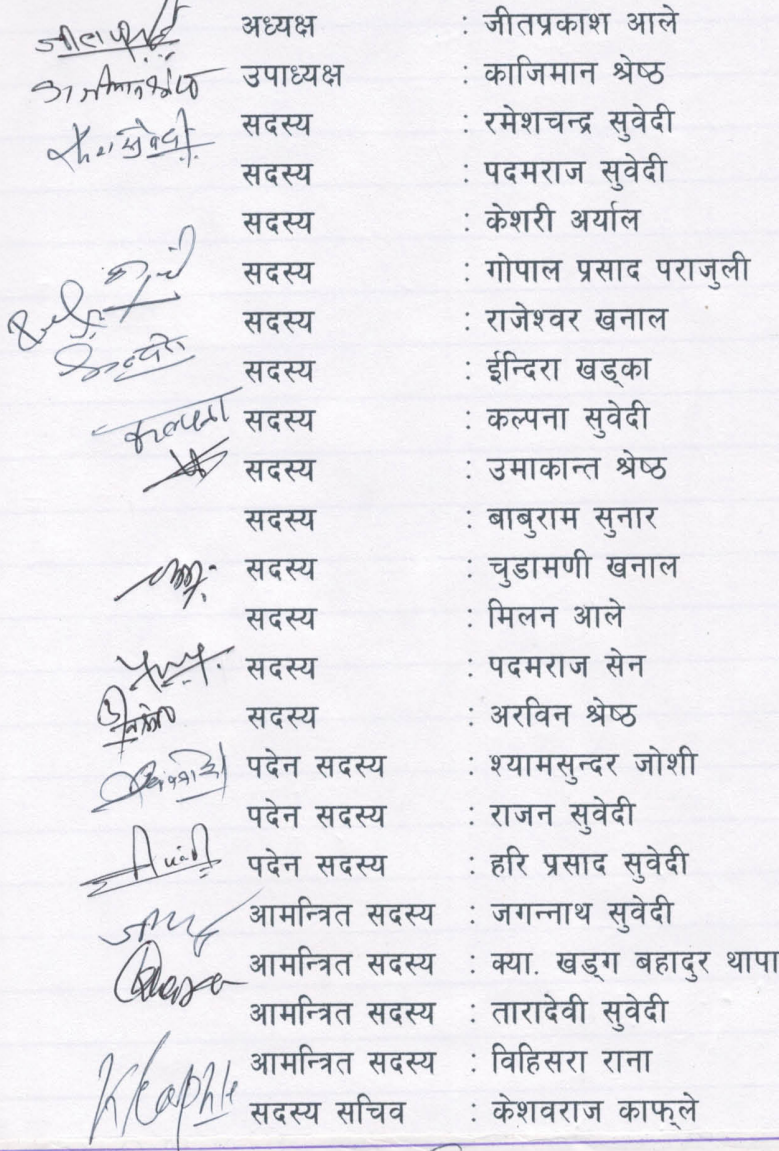 अध्यक्ष : जीतप्रकाश आले
उपाध्यक्ष : काजिमान श्रेष्ठ
सदस्य : रमेशचन्द्र सुवेदी
सदस्य : पदमराज सुवेदी
सदस्य : केशरी अर्याल
सदस्य : गोपाल प्रसाद पराजुली
सदस्य : राजेश्वर खनाल
सदस्य : ईन्दिरा खड्का
कल्पना सदस्य : कल्पना सुवेदी
सदस्य : उमाकान्त श्रेष्ठ
सदस्य : बाबुराम सुनार
सदस्य : चुडामणी खनाल
सदस्य : मिलन आले
सदस्य : पदमराज सेन
सदस्य : अरविन श्रेष्ठ
पदेन सदस्य : श्यामसुन्दर जोशी
पदेन सदस्य : राजन सुवेदी
पदेन सदस्य : हरि प्रसाद सुवेदी
आमन्त्रित सदस्य : जगन्नाथ सुवेदी
आमन्त्रित सदस्य : क्या. खड्ग बहादुर थापा
आमन्त्रित सदस्य : तारादेवी सुवेदी
आमन्त्रित सदस्य : विहिसरा राना
सदस्य सचिव : केशवराज काफ्ले